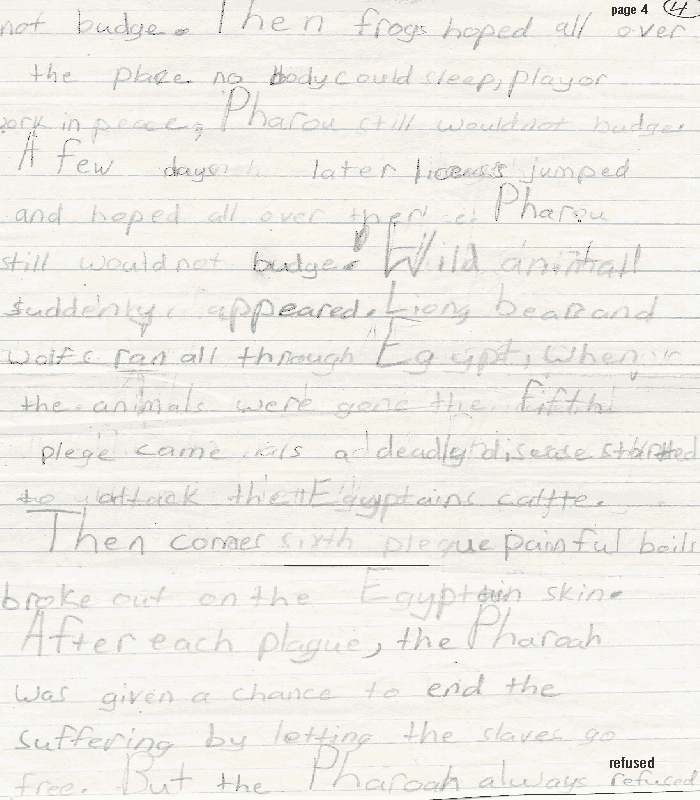 page 4 4
not budge. Then frogs hoped all over
the place no body could sleep, play or
work in peace, Pharou still would not budge.
A few days later licens jumped
and hoped all over Pharou
still would not budge. Wild animall
suddenly appeared. Liong bears and
wolfs ran all through Egypt, When
the animals were gone the fifth
plege came a deadly disease started
to attack the Egyptains cattte.
Then comes sixth plegue painful boils
broke out on the Egyptain skin.
After each plague, the Pharoah
was given a chance to end the
suffering by letting the slaves go
refused
free. But the Pharoah always refused